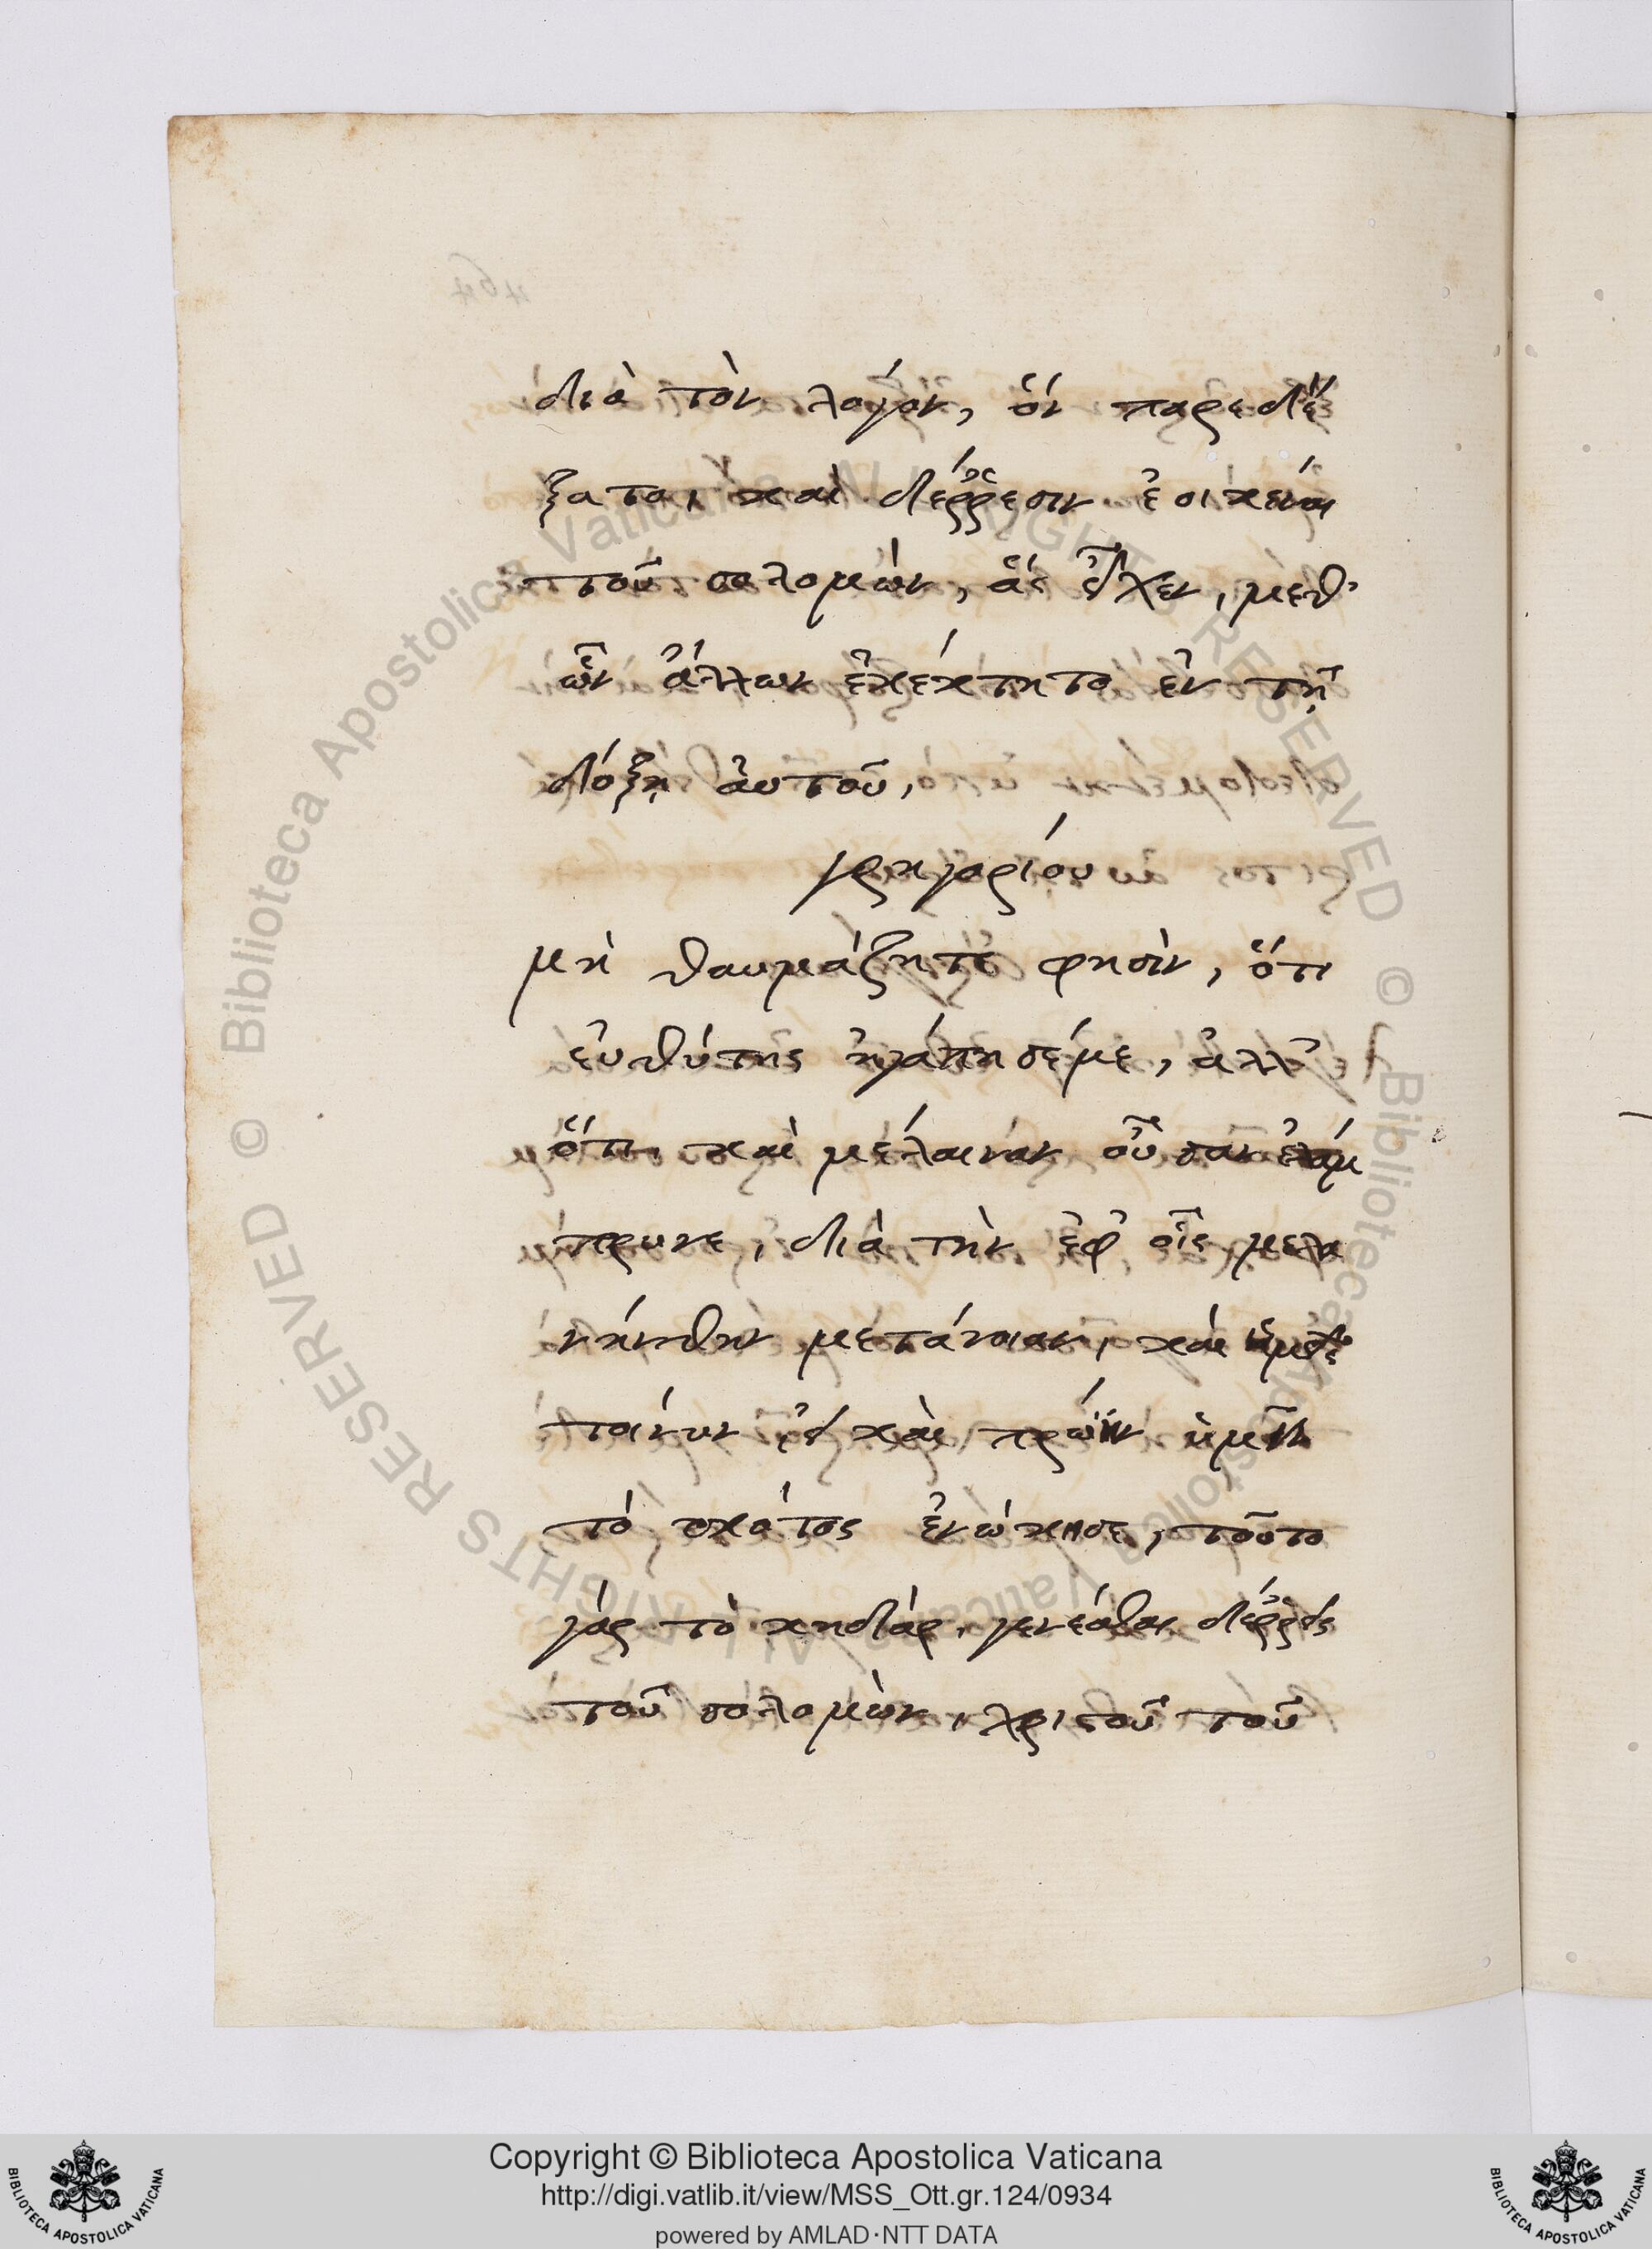 διὰ τὸν λόγον, ὃν παρεδέ
ξατο, καὶ δέρρεσιν ἐοικέναι
τοῦ σαλομὼν, ἃς εἶχεν, μεθ'
ὧν ἄλλων ἐκέκτητο ἐν τῇ
δόξῃ ἀυτοῦ,
γρηγορίου
μὴ θαυμάζητέ φησὶν, ὅτι
ἐυθύτης ἠγάπησέ με, ἀλλ'
ὅτι καὶ μέλαιναν οὖσαν ἐλάμ
πρυνε, διὰ τὴν ἐφ' οἷς μελα
νήνθην μετάνοιαν, καὶ
τοίνυν εἰ καὶ πρώην ὑμῖν
τὸ σκότος ἐνώκησε, τοῦτο
γὰρ τὸ κηδὰρ, γενέσθαι δέρρεις
τοῦ σολομὼν, χριστοῦ τοῦ
Copyright © Biblioteca Apostolica Vaticana
http://digi.vatlib.it/view/MSS_Ott.gr.124/0934
powered by AMLAD·NTT DATA
BIBLIOTECA APOSTOLICA VATICANA
BIBLIOTECA APOSTOLICA VATICANA
© Biblioteca Apostolica Vaticana ALL RIGHTS RESERVED © Biblioteca Apostolica Vaticana ALL RIGHTS RESERVED